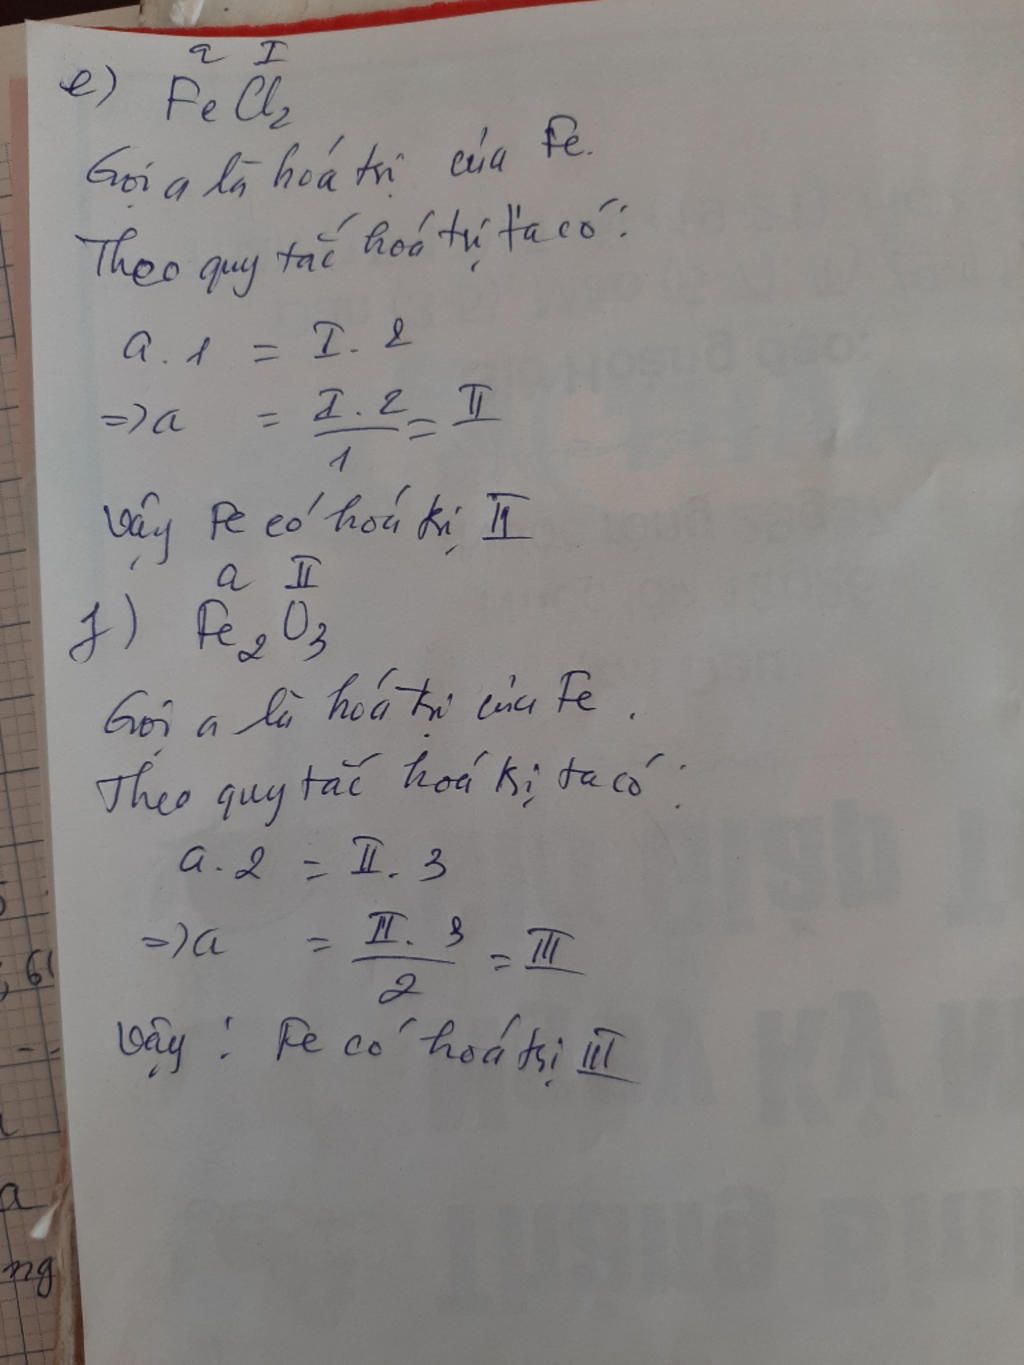 a I
e) FeCl₂
Gọi a là hoá trị của Fe.
Theo quy tắc hoá trị ta có:
a.1 = I.2
=> a = I.2/1 = II
Vậy Fe có hoá trị II
a II
f) Fe₂O₃
Gọi a là hoá trị của Fe.
Theo quy tắc hoá trị ta có:
a.2 = II.3
=> a = II.3/2 = III
Vậy: Fe có hoá trị III
61
a
ng